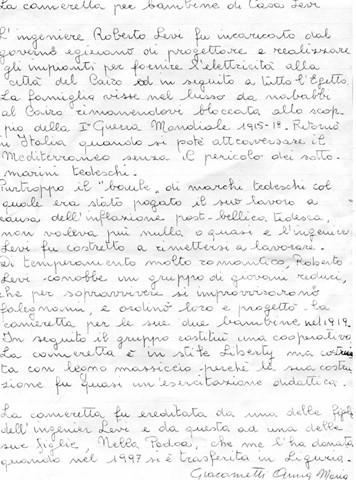 La cameretta per bambine di Casa Levi
L'ingeniere Roberto Levi fu incaricato dal
governo egiziano di progettare e realizzare
gli impianti per fornire l'elettricità alla
città del Cairo ed in seguito a tutto l'Egitto.
La famiglia visse nel lusso da nababbi
al Cairo rimanendovi bloccata allo scop-
pio della Iª Guerra Mondiale 1915-18. Ritornò
in Italia quando si poté attraversare il
Mediterraneo senza il pericolo dei sotto-
marini tedeschi.
Purtroppo il "baule" di marchi tedeschi col
quale era stato pagato il suo lavoro a
causa dell'inflazione post-bellica tedesca,
non valeva più nulla o quasi e l'ingeniere
Levi fu costretto a rimettersi a lavorare.
Di temperamento molto romantico, Roberto
Levi conobbe un gruppo di giovani reduci,
che per sopravvivere si improvvisarono
falegnami, e ordinò loro e progettò la
cameretta per le sue due bambine nel 1919.
In seguito il gruppo costituì una cooperativa.
La cameretta è in stile Liberty ma costrui
ta con legno massiccio perché la sua costru
zione fu quasi un'esercitazione didattica.
La cameretta fu ereditata da una delle figlie
dell'ingenier Levi e da questa ad una delle
sue figlie, Nella Padoa, che me l'ha donata
quando nel 1997 si è trasferita in Liguria.
Giacometti Anna Maria